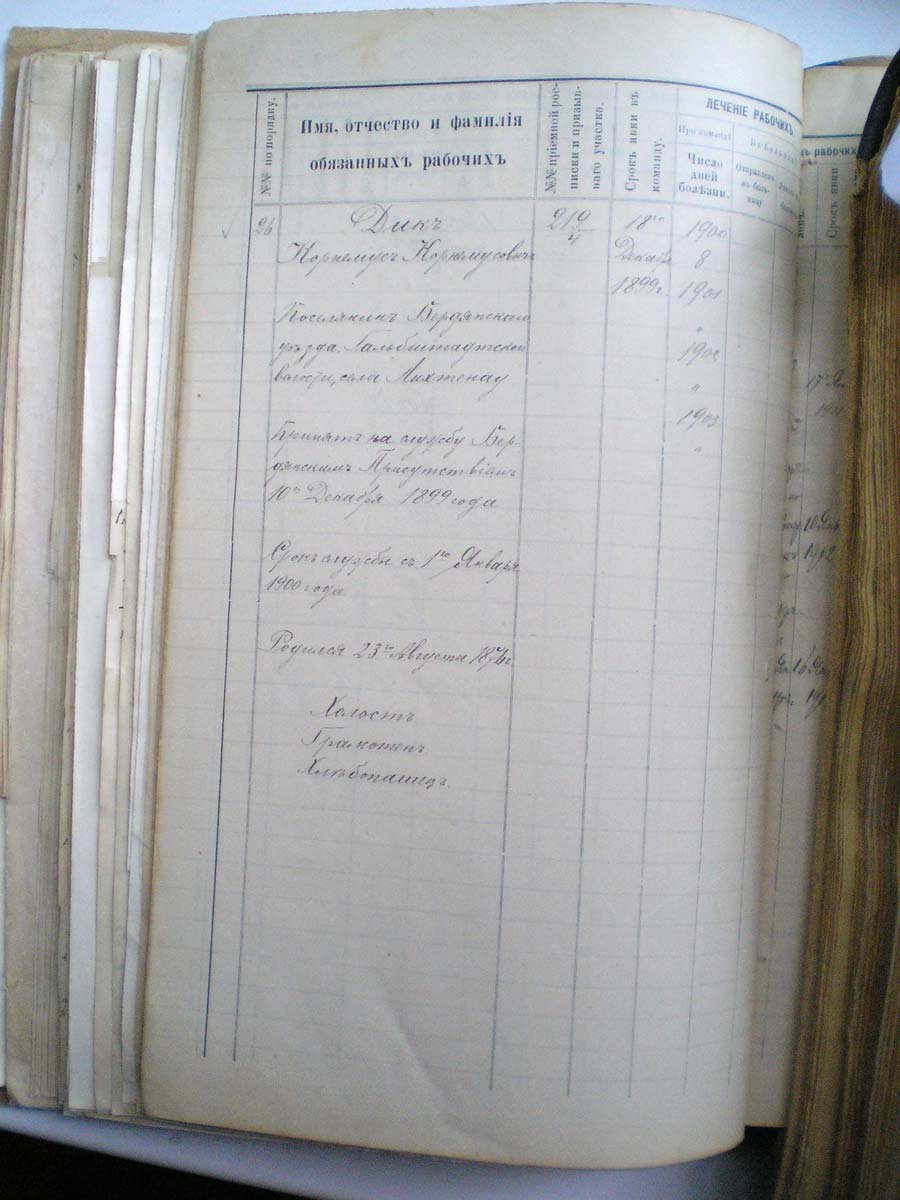 №№ по порядку.
Имя, отчество и фамилія
обязанныхъ рабочихъ
№№ пріемной рос-
писки и призыв-
наго участка.
Срокъ явки въ
команду.
ЛЕЧЕНІЕ РАБОЧИХЪ
При командѣ
Число
дней
болѣзни.
Отправленъ
въ боль-
ницу
рабочихъ
Срокъ явки
26 Дикъ 219/4 18го 1900
Корнелиусъ Корнелиусовичъ Декабря 8
1899г. 1901
Поселянинъ Бердянскаго "
уѣзда, Гальбштадтской 1902
волости, села Лихтенау "
1903
Принятъ на службу Бер- "
дянскимъ Присутствіемъ
10го Декабря 1899 года
Срокъ службы съ 1го Января
1900 года
Родился 23го Августа 1876г.
Холостъ
Грамотенъ
Хлѣбопашецъ.